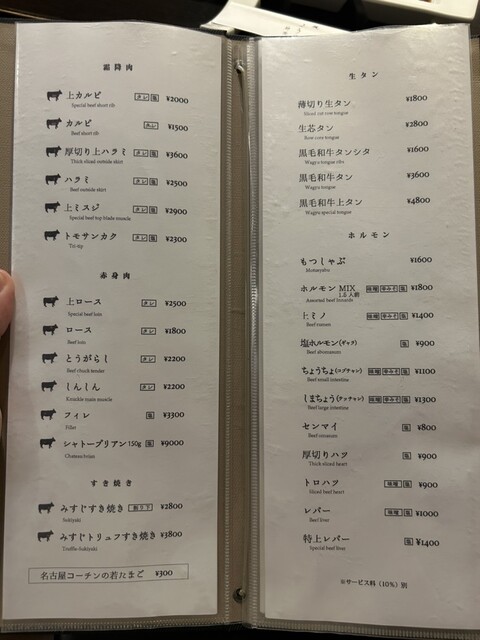 霜降肉
上カルビ タレ 塩 ¥2000
Special beef short rib
カルビ タレ ¥1500
Beef short rib
厚切り上ハラミ タレ 塩 ¥3600
Thick sliced outside skirt
ハラミ タレ 塩 ¥2500
Beef outside skirt
上ミスジ タレ 塩 ¥2900
Special beef top blade muscle
トモサンカク タレ 塩 ¥2300
Tri-tip
赤身肉
上ロース タレ ¥2500
Special beef loin
ロース タレ ¥1800
Beef loin
とうがらし タレ ¥2200
Beef chuck tender
しんしん タレ ¥2200
Knuckle main muscle
フィレ 塩 ¥3300
Fillet
シャトーブリアン150g 塩 ¥9000
Chateaubrian
すき焼き
みすじすき焼き 割り下 ¥2800
Sukiyaki
みすじトリュフすき焼き ¥3800
Truffle-Sukiyaki
名古屋コーチンの若たまご ¥300
生タン
薄切り生タン ¥1800
Sliced raw tongue
生芯タン ¥2800
Raw core tongue
黒毛和牛タンシタ ¥1600
Wagyu tongue ribs
黒毛和牛タン ¥3600
Wagyu tongue
黒毛和牛上タン ¥4800
Wagyu special tongue
ホルモン
もつしゃぶ ¥1600
Motsuyabu
ホルモン MIX 味噌 辛みそ 塩 ¥1800
1.5 人前
Assorted beef Innards
上ミノ 味噌 辛みそ 塩 ¥1400
Beef rumen
塩ホルモン(ギャラ) 塩 ¥900
Beef abomasum
ちょうちょう(コプチャン) 味噌 辛みそ 塩 ¥1100
Beef small intestine
しまちょう(テッチャン) 味噌 辛みそ 塩 ¥1300
Beef large intestine
センマイ 塩 ¥800
Beef omasum
厚切りハツ 塩 ¥900
Thick sliced heart
トロハツ 味噌 塩 ¥900
Sliced beef heart
レバー 味噌 塩 ¥1000
Beef liver
特上レバー 塩 ¥1400
Special beef liver
※サービス料（10%）別